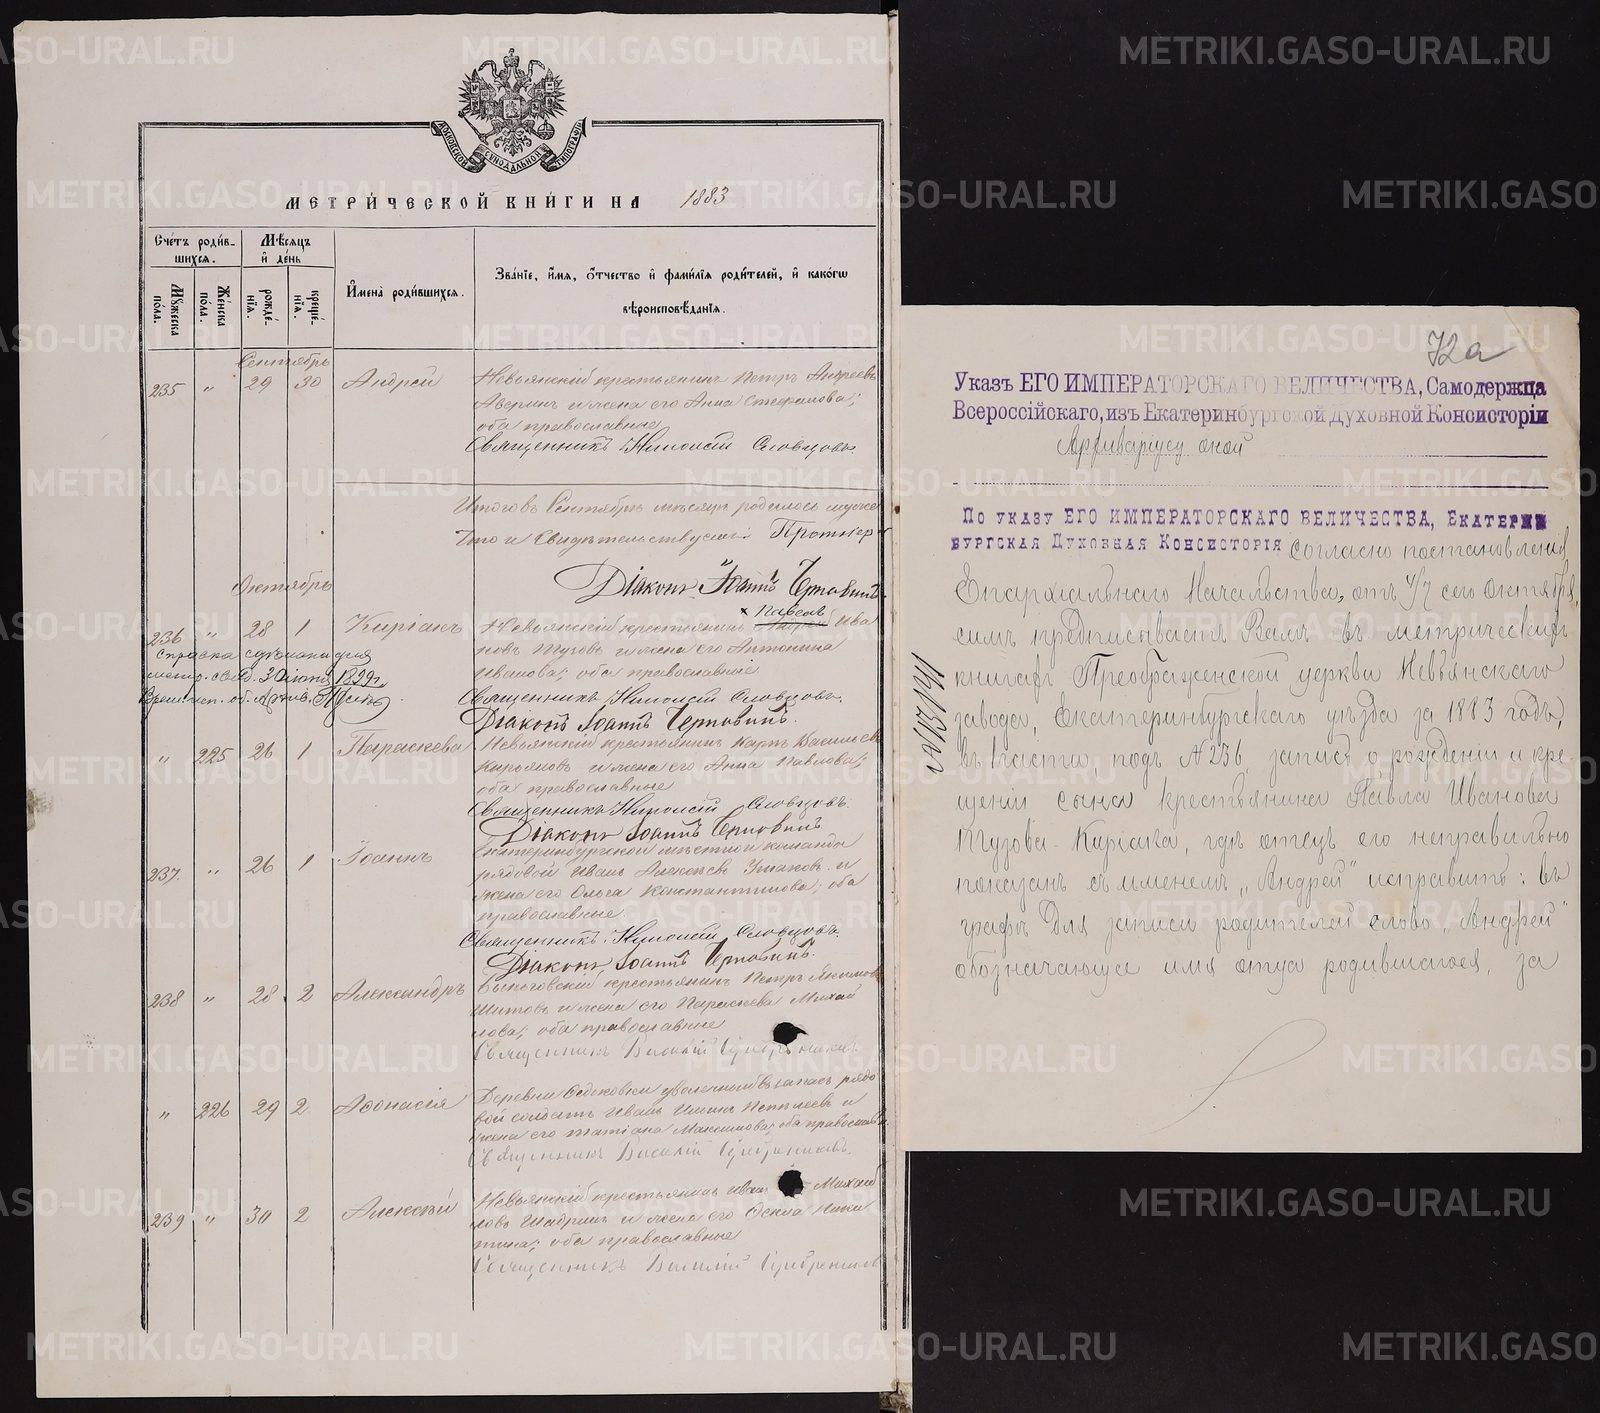 МОСКОВСКОЙ СѴНОДАЛЬНОЙ ТИПОГРАФІИ
МЕТРИ́ЧЕСКОЙ КНИ́ГИ НА 1883
Сче́тъ роди́в-
шихся.
Мѣ́сяцъ
и҆ де́нь
Му́жеска
по́ла.
Же́нска
по́ла.
рожде́-
нїя.
креще́-
нїя.
И҆мена̀ роди́вшихся.
Зва́нїе, и҆́мя, ѻ҆́тчество и҆ фами́лїя роди́телей, и҆ како́гѡ
вѣроисповѣ́данїя.
Сентябрь
235 " 29 30 Андрей
Невьянскій крестьянинъ Петръ Андреевъ
Аверинъ и жена его Анна Стефанова;
оба православные
Священникъ Словцовъ
Итого въ Сентябрѣ мѣсяцѣ родилось муже
Діаконъ Іоаннъ
Октябрь
236 " 28 1 Киріакъ
× Павелъ
Невьянскій крестьянинъ Андрей Ива
новъ Тузовъ и жена его Антонина
Иванова; оба православные
Священникъ Словцовъ.
Діаконъ Іоаннъ
справка сдѣлана для
метр. свид. 3 Іюня 1899 г.
" 225 26 1 Параскева
Невьянскій крестьянинъ Карпъ Васильевъ
Кирьяновъ и жена его Анна Павлова;
оба православные
Священникъ Словцовъ.
Діаконъ Іоаннъ
237. " 26 1 Іоаннъ
Екатеринбургской мѣстной команды
рядовой Иванъ Алексѣевъ и
жена его Ольга Константинова; оба
православные.
Священникъ Словцовъ.
Діаконъ Іоаннъ
238 " 28 2 Александръ
крестьянинъ Петръ Якимовъ
Шитовъ и жена его Параскева Михай
лова; оба православные
Священникъ Василій
" 226 29 2 Афонасія
Деревни уволенный въ запасъ рядо
вой солдатъ Иванъ и
жена его Татіана Максимова; оба православн
Священникъ Василій
239 " 30 2 Алексѣй
Невьянскій крестьянинъ Иванъ Михай
ловъ Шадринъ и жена его Ники
тина; оба православные
Священникъ Василій
72а
Указъ ЕГО ИМПЕРАТОРСКАГО ВЕЛИЧЕСТВА, Самодержца
Всероссійскаго, изъ Екатеринбургской Духовной Консисторіи
Архиваріусу оной
По указу ЕГО ИМПЕРАТОРСКАГО ВЕЛИЧЕСТВА, Екатерин
бургская Духовная Консисторія согласно постановленія
Епархіальнаго Начальства, отъ 4/7 сего Октября,
симъ предписываетъ Вамъ въ метрическихъ
книгахъ Преображенской церкви Невьянскаго
завода, Екатеринбургскаго уѣзда за 1883 годъ,
въ 1 части, подъ № 236, записи о рожденіи и кре-
щеніи сына крестьянина Павла Иванова
Тузова - Киріака, гдѣ отецъ его неправильно
показанъ съ именемъ „Андрей" исправить: въ
графѣ для записи родителей слово „Андрей"
обозначающее имя отца родившагося, за
METRIKI.GASO-URAL.RU